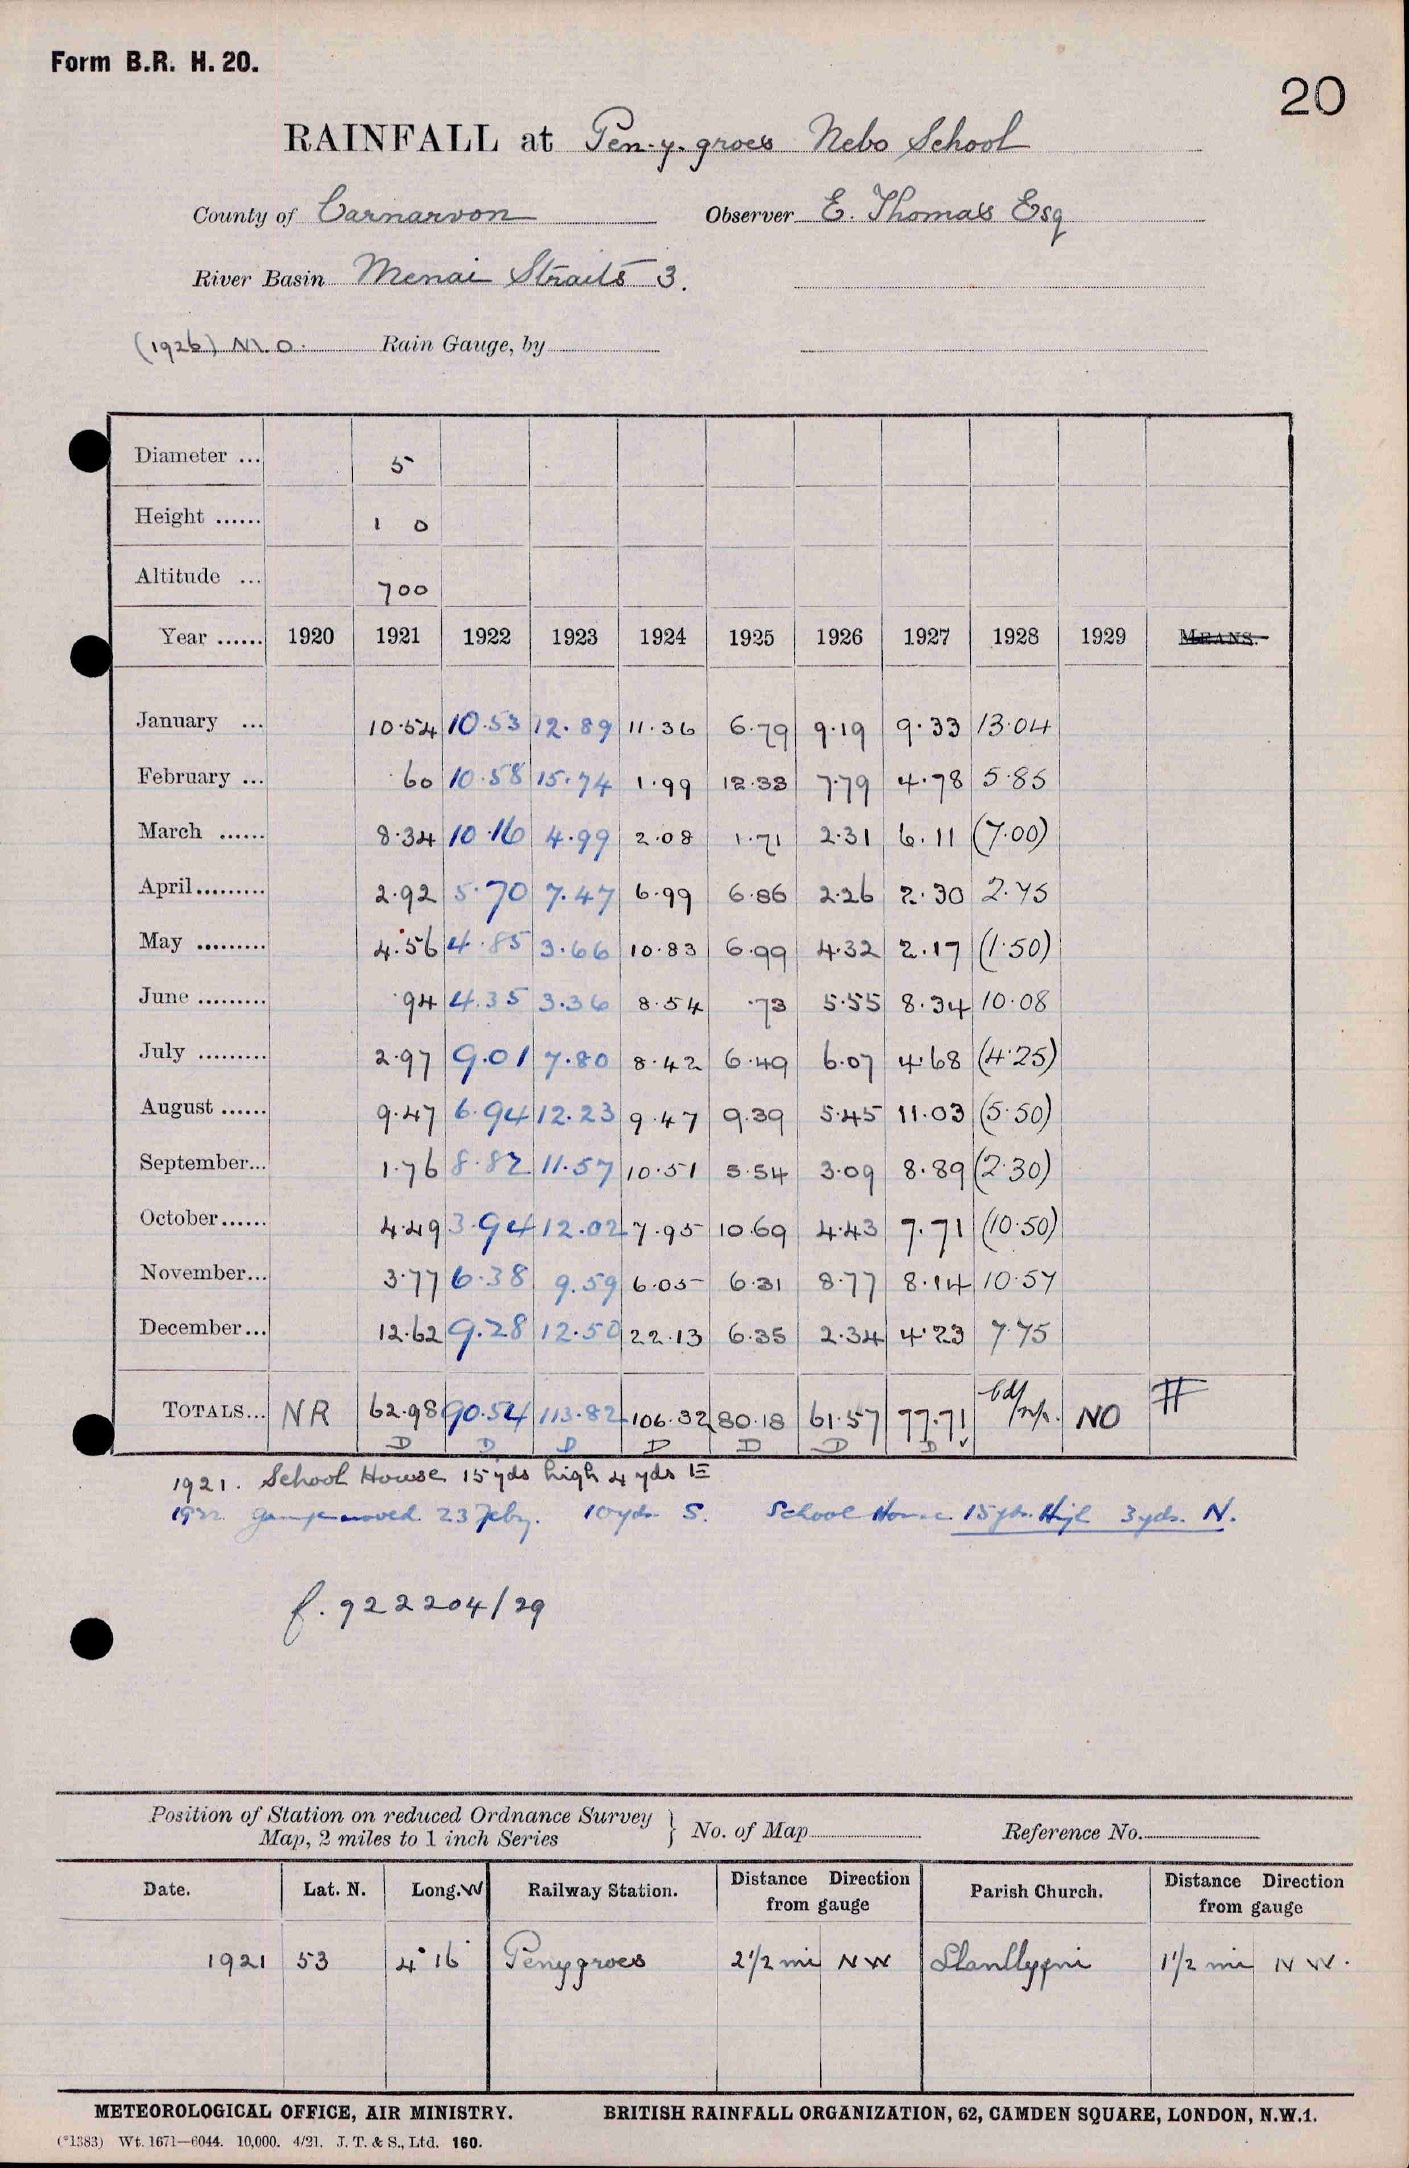 Form B.R. H. 20.
20
RAINFALL at Pen-y-groes Nebo School
County of Carnarvon Observer E. Thomas Esq
River Basin Menai Straits 3.
(1926) M.O. Rain Gauge, by
Diameter ... 5
Height ...... 1 0
Altitude ... 700
Year ...... 1920 1921 1922 1923 1924 1925 1926 1927 1928 1929 MEANS.
January ... 10.54 10.53 12.89 11.36 6.79 9.19 9.33 13.04
February ... .60 10.58 15.74 1.99 12.33 7.79 4.78 5.85
March ...... 8.34 10.16 4.99 2.08 1.71 2.31 6.11 (7.00)
April ......... 2.92 5.70 7.47 6.99 6.86 2.26 2.30 2.75
May ......... 4.56 4.85 3.66 10.83 6.99 4.32 2.17 (1.50)
June ......... .94 4.35 3.36 8.54 .73 5.55 8.34 10.08
July ......... 2.97 9.01 7.80 8.42 6.49 6.07 4.68 (4.25)
August ...... 9.47 6.94 12.23 9.47 9.39 5.45 11.03 (5.50)
September... 1.76 8.82 11.57 10.51 5.54 3.09 8.89 (2.30)
October...... 4.49 3.94 12.02 7.95 10.69 4.43 7.71 (10.50)
November... 3.77 6.38 9.59 6.05 6.31 8.77 8.14 10.57
December... 12.62 9.28 12.50 22.13 6.35 2.34 4.23 7.75
TOTALS... NR 62.98 90.54 113.82 106.32 80.18 61.57 77.71 NO
D D D D D D D
1921. School House 15 yds high 4 yds E
1922 gauge moved 23 Feby. 10 yds S. School House 15 yds. High 3 yds. N.
f. 922204/29
Position of Station on reduced Ordnance Survey
Map, 2 miles to 1 inch Series } No. of Map Reference No.
Date. Lat. N. Long. W Railway Station. Distance Direction from gauge Parish Church. Distance Direction from gauge
1921 53 4° 16' Penygroes 2 1/2 mi NW Llanllyfni 1 1/2 mi NW.
METEOROLOGICAL OFFICE, AIR MINISTRY. BRITISH RAINFALL ORGANIZATION, 62, CAMDEN SQUARE, LONDON, N.W.1.
(*1383) Wt. 1671—6044. 10,000. 4/21. J. T. & S., Ltd. 160.